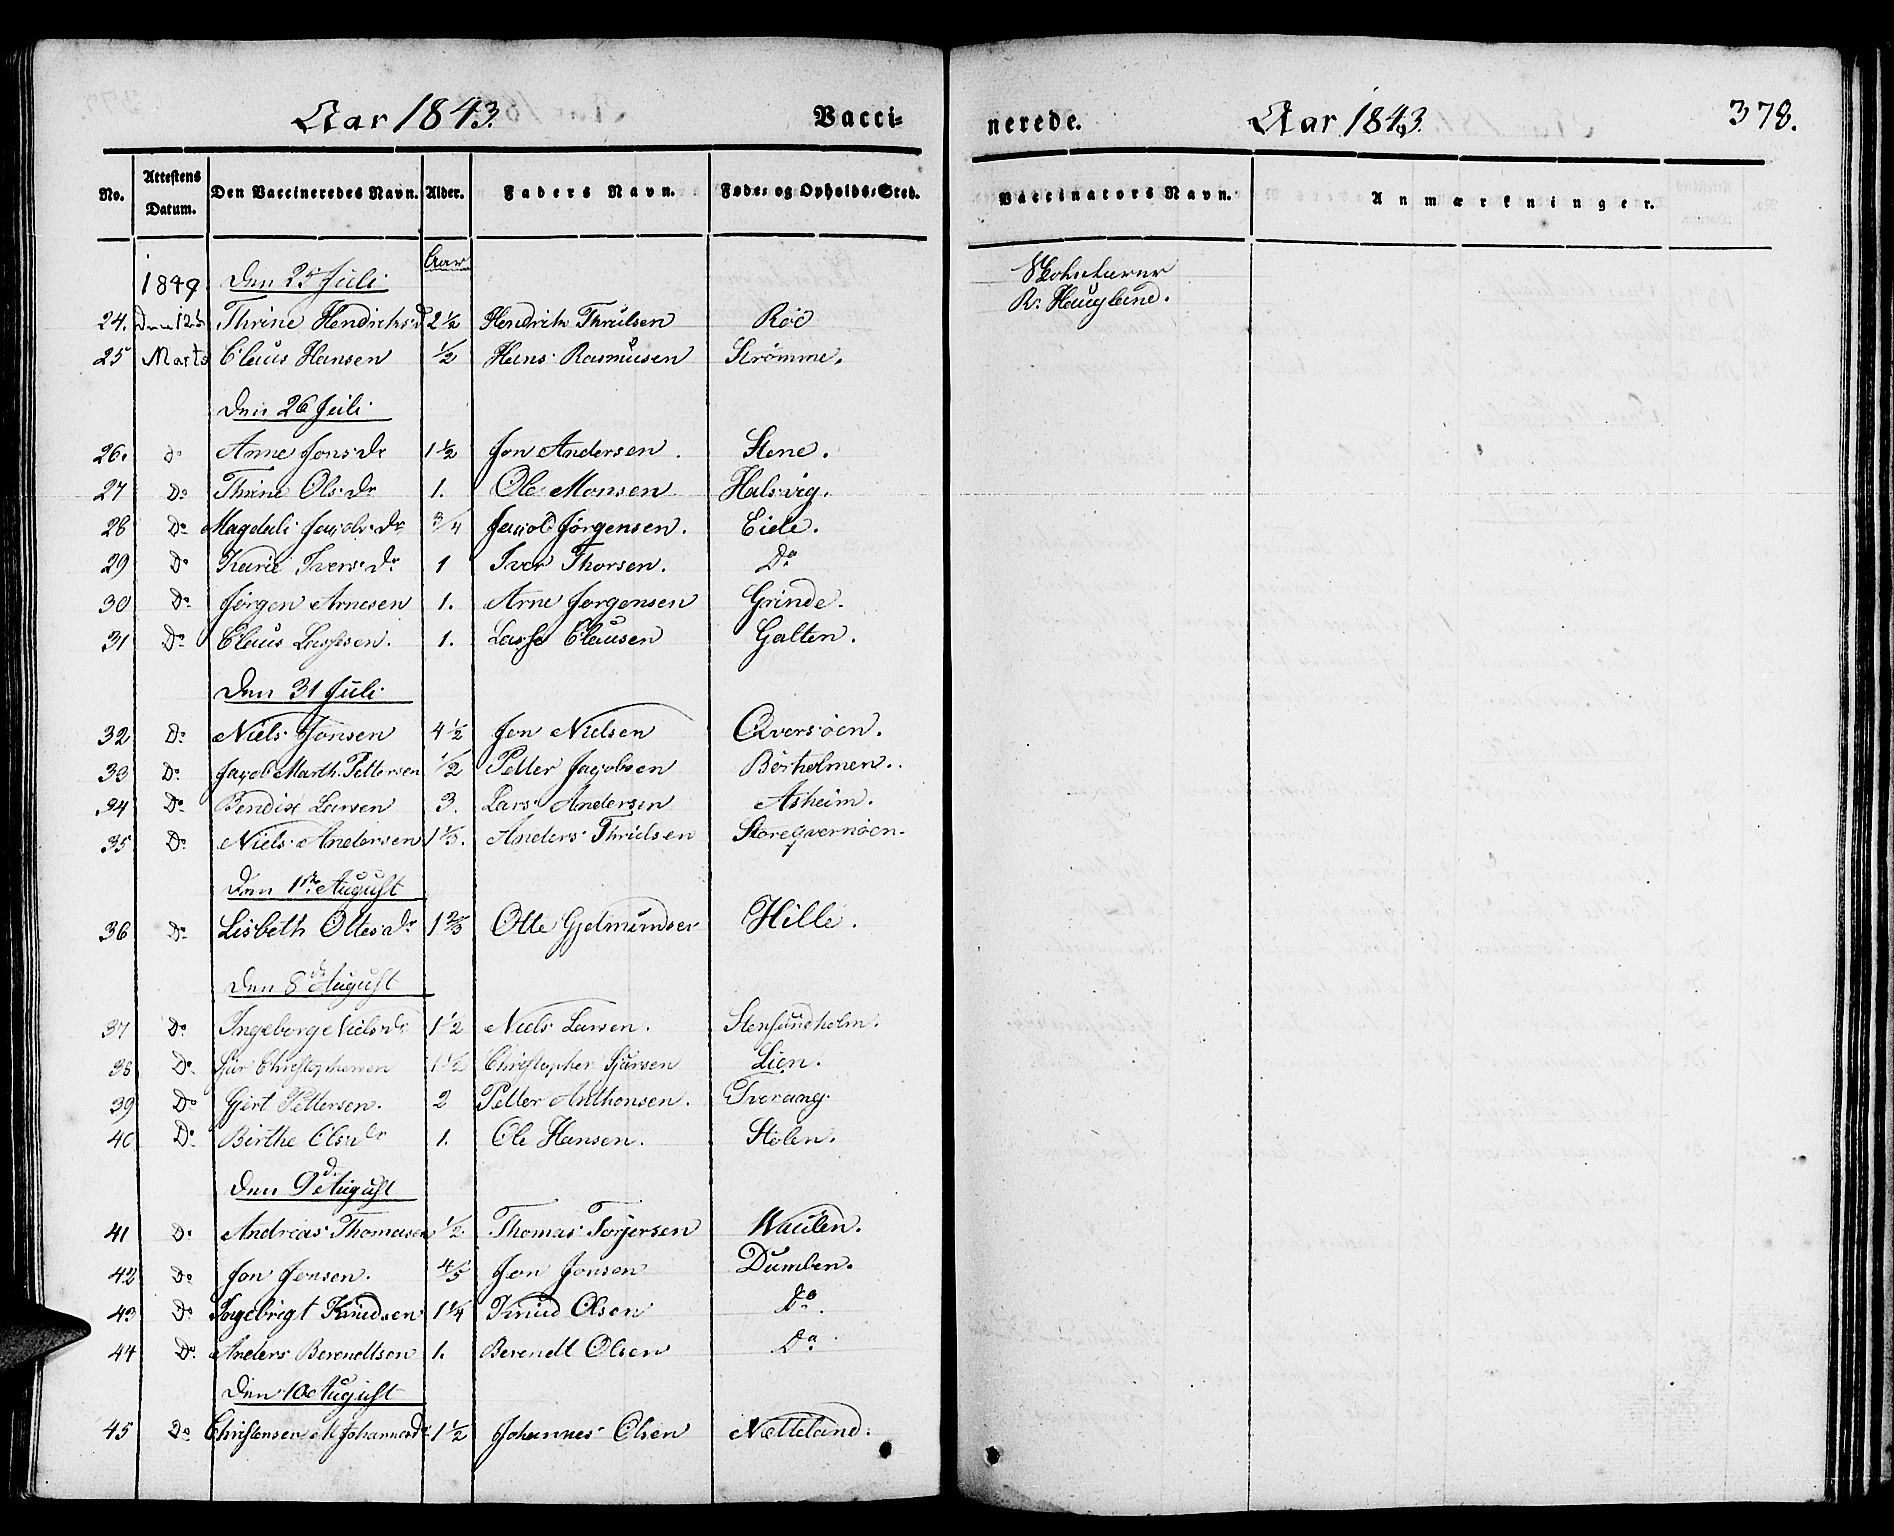 Aar 1843. Vacci-
No. Attestens Datum. Den Vaccineredes Navn. Alder. Faders Navn. Føde- og Opholds-Sted.
Aar
1849. Den 25 Juli
24. Den 12te Thrine Hendrichsdr 2 1/2 Hendrich Thrulsen Röd
25 Marts Claus Hansen 1/2 Hans Rasmusen Strömme.
Den 26 Juli
26. Do Anne Jonsdr 1 1/2 Jon Andersen. Stene.
27 Do Thrine Olsdr 1. Ole Monsen Halsvig.
28 Do Magdali Jacobsdr 3/4 Jacob Jörgensen. Eide.
29 Do Kari Iversdr 1 Iver Thorsen. Do
30 Do Jörgen Arnesen 1. Arne Jörgensen Grinde.
31 Do Claus Lassesen. 1. Lasse Clausen Galten.
Den 31 Juli
32 Do Niels Jonsen 4 1/2 Jon Nielsen Qversöen.
33 Do Jacob Marth. Pettersen 1/2 Petter Jacobsen Börholmen.
34 Do Bendix Larsen 3. Lars Andersen Asheim.
35 Do Niels Andersen 1 1/3. Anders Thrulsen Store Qvernöen.
Den 1ste August
36 Do Lisbeth Ottesdr 1 2/3 Otte Gjelmundsen Hille.
Den 8de August
37 Do Ingeborg Nielsdr 1 1/2 Niels Larsen. Stensundholm.
38 Do Sjur Christophersen 1 1/2 Christopher Sjursen Lien.
39 Do Gjert Pettersen. 2 Petter Anthonsen. Tverang.
40 Do Birthe Olsdr 1. Ole Hansen. Stölen.
Den 9de August
41 Do Andreas Thomasen 1/2 Thomas Torjersen Waulen.
42 Do Jon Jonsen. 4/5 Jon Jonsen Dumben.
43 Do Ingebrigt Knudsen 1 1/4 Knud Olsen Do.
44 Do Anders Berendtsen 1. Berendt Olsen Do
Den 10 August
45 Do Christense M Johannesdr 1 1/2 Johannes Olsen Netteland.
nerede. Aar 1843. 378.
Vaccinators Navn. Anmærkninger.
R. Haugland.